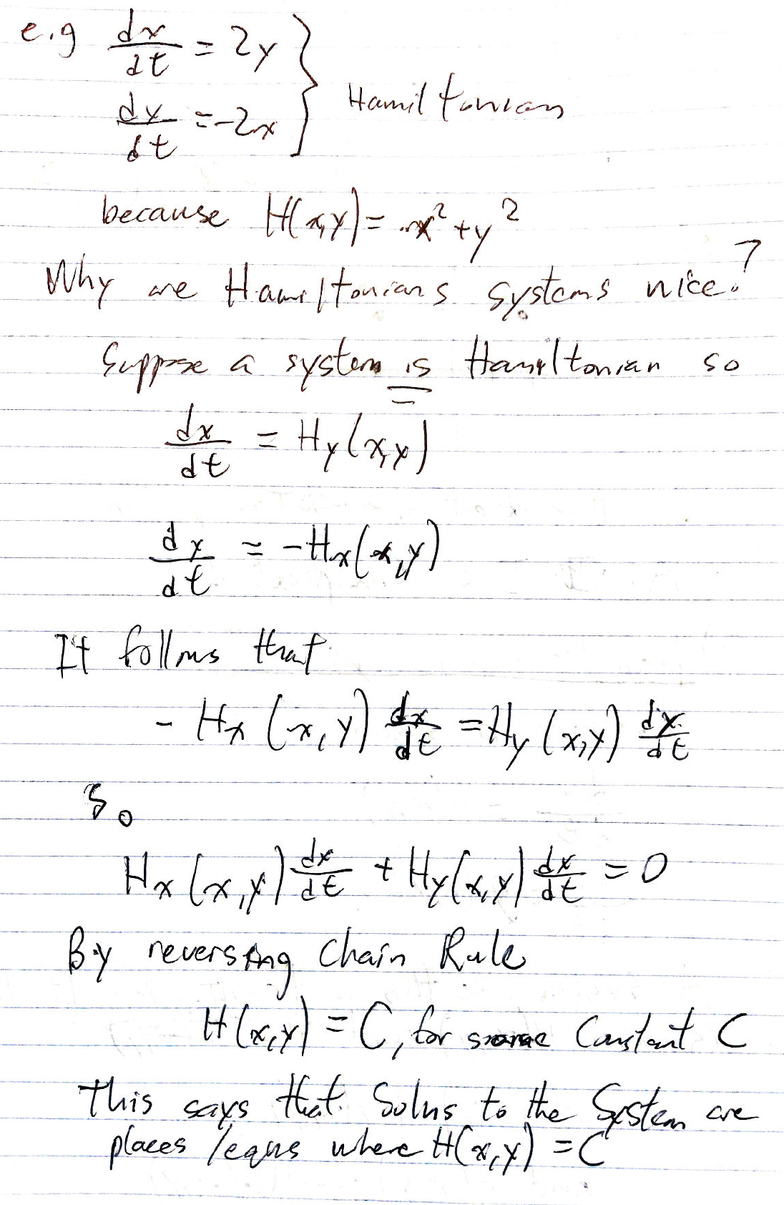 e.g dx/dt = 2y
dy/dt = -2x } Hamiltonian
because H(x,y) = x² + y²
Why are Hamiltonians systems nice?
Suppose a system is Hamiltonian so
dx/dt = Hy(x,y)
dy/dt = -Hx(x,y)
It follows that
- Hx (x,y) dx/dt = Hy (x,y) dy/dt
So
Hx (x,y) dx/dt + Hy(x,y) dy/dt = 0
By reversing Chain Rule
H(x,y) = C, for some Constant C
This says that Solns to the System are
places/eqns where H(x,y) = C